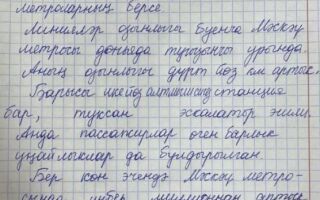 метроларның берсе.
Линиялар озынлыгы буенча Мәскәү
метросы дөньяда тугызынчы урында.
Аның озынлыгы дүрт йөз км артык.
Барысы ике йөз алтмыш станция
бар, туксан эскалатор эшли.
Анда пассажирлар өчен барлык
уңайлыклар да булдырылган.
Бер көн эчендә Мәскәү метро-
сында миллионнан артык